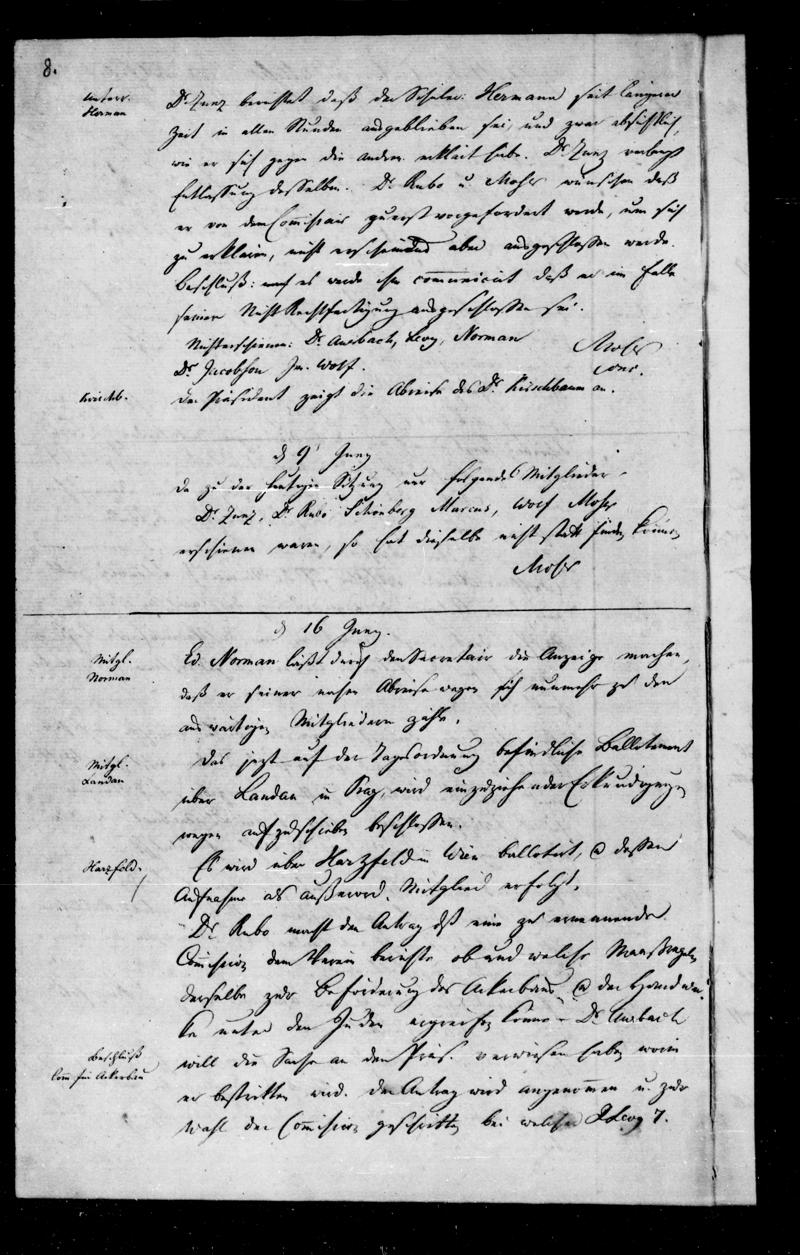 8.
Unterr.
Herman
Dr Zunz berichtet daß der Schüler Hermann seit längerer
Zeit in allen Stunden ausgeblieben sei, und zwar absichtlich,
wie er sich gegen die andern erklärt habe. Dr Zunz verlangt
Entlassung desselben. Dr Rubo u Moser wünschen daß
er von dem Commissair zuerst vorgefordert werde, um sich
zu erklären, nicht erscheinend aber ausgeschlossen werde.
Beschluß: es werde ihm communicirt daß er im Falle
seiner Nicht Rechtfertigung ausgeschlossen sei.
Nichterschienen: Dr Auerbach, Levy, Norman
Dr Jacobson Jm. Wolf.
Moser
Kirschb.
der Präsident zeigt die Abreise des Dr Kirschbaum an.
d 9 Juny
da zu der heutigen Sitzung nur folgende Mitglieder
Dr Zunz, Dr Rubo Schönberg Marcus, Wolf Moser
erschienen waren, so hat dieselbe nicht statt finden können
Moser
d 16 Juny.
Mitgl.
Norman
Ed. Norman läßt durch den Secretair die Anzeige machen,
daß er seiner nahen Abreise wegen sich nunmehr zu den
auswärtigen Mitgliedern zähle.
Mitgl.
Landau
Das jetzt auf der Tagesordnung befindliche Ballotement
über Landau in Prag, wird einzuziehender Erkundigungen
wegen aufzuschieben beschlossen.
Herzfeld
Es wird über Herzfeld in Wien ballotirt, u dessen
Aufnahme als außerord. Mitglied erfolgt.
Dr Rubo macht den Antrag daß eine zu ernennende
Commission dem Verein berichte ob und welche Maasregeln
derselbe zur Beförderung des Ackerbaus u der Handwer-
ke unter den Juden ergreifen könne. Dr Auerbach
Beschluß
Com für Ackerbau
will die Sache an den Präs. verwiesen haben worin
er bestritten wird. der Antrag wird angenommen u. zur
Wahl der Commission geschritten bei welcher Levy 7.